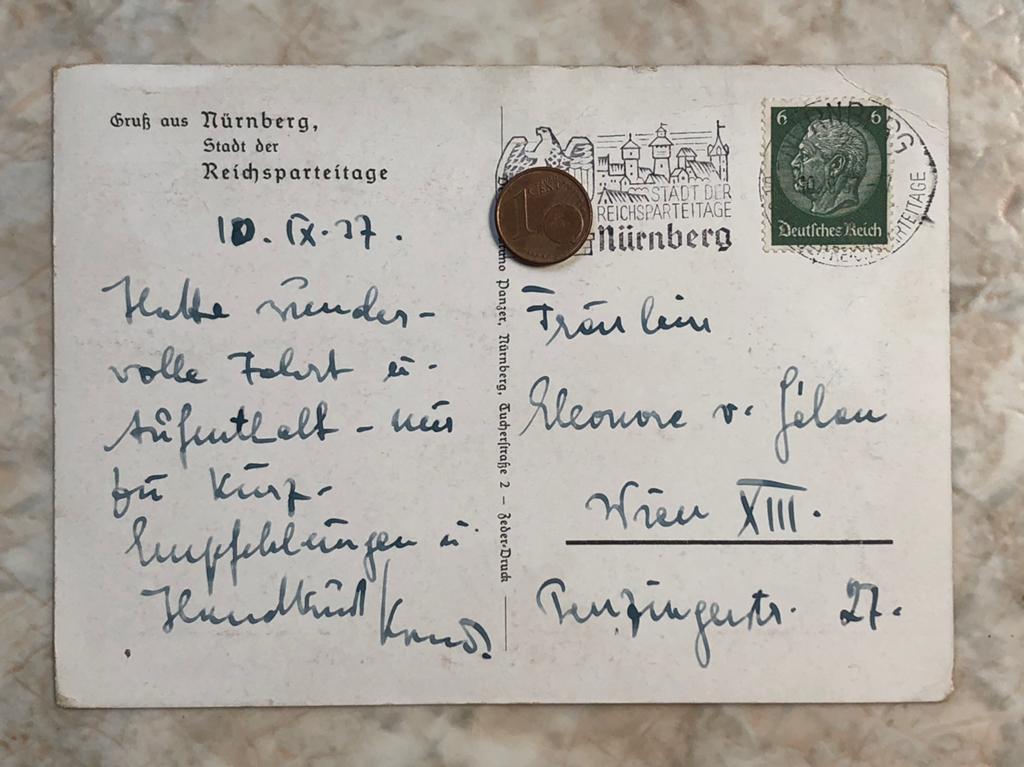 Gruß aus Nürnberg,
Stadt der
Reichsparteitage
10. IX. 37.
Hatte wunder-
volle Fahrt u.
Aufenthalt - nur
zu kurz.
Empfehlungen u.
Handkuß
Panzer, Nürnberg, Tucherstraße 2 – Zeder-Druck
STADT DER
REICHSPARTEITAGE
Nürnberg
1
6 6
Deutsches Reich
Fräulein
Eleonore v.
Wien XIII.
Penzingerstr. 27.